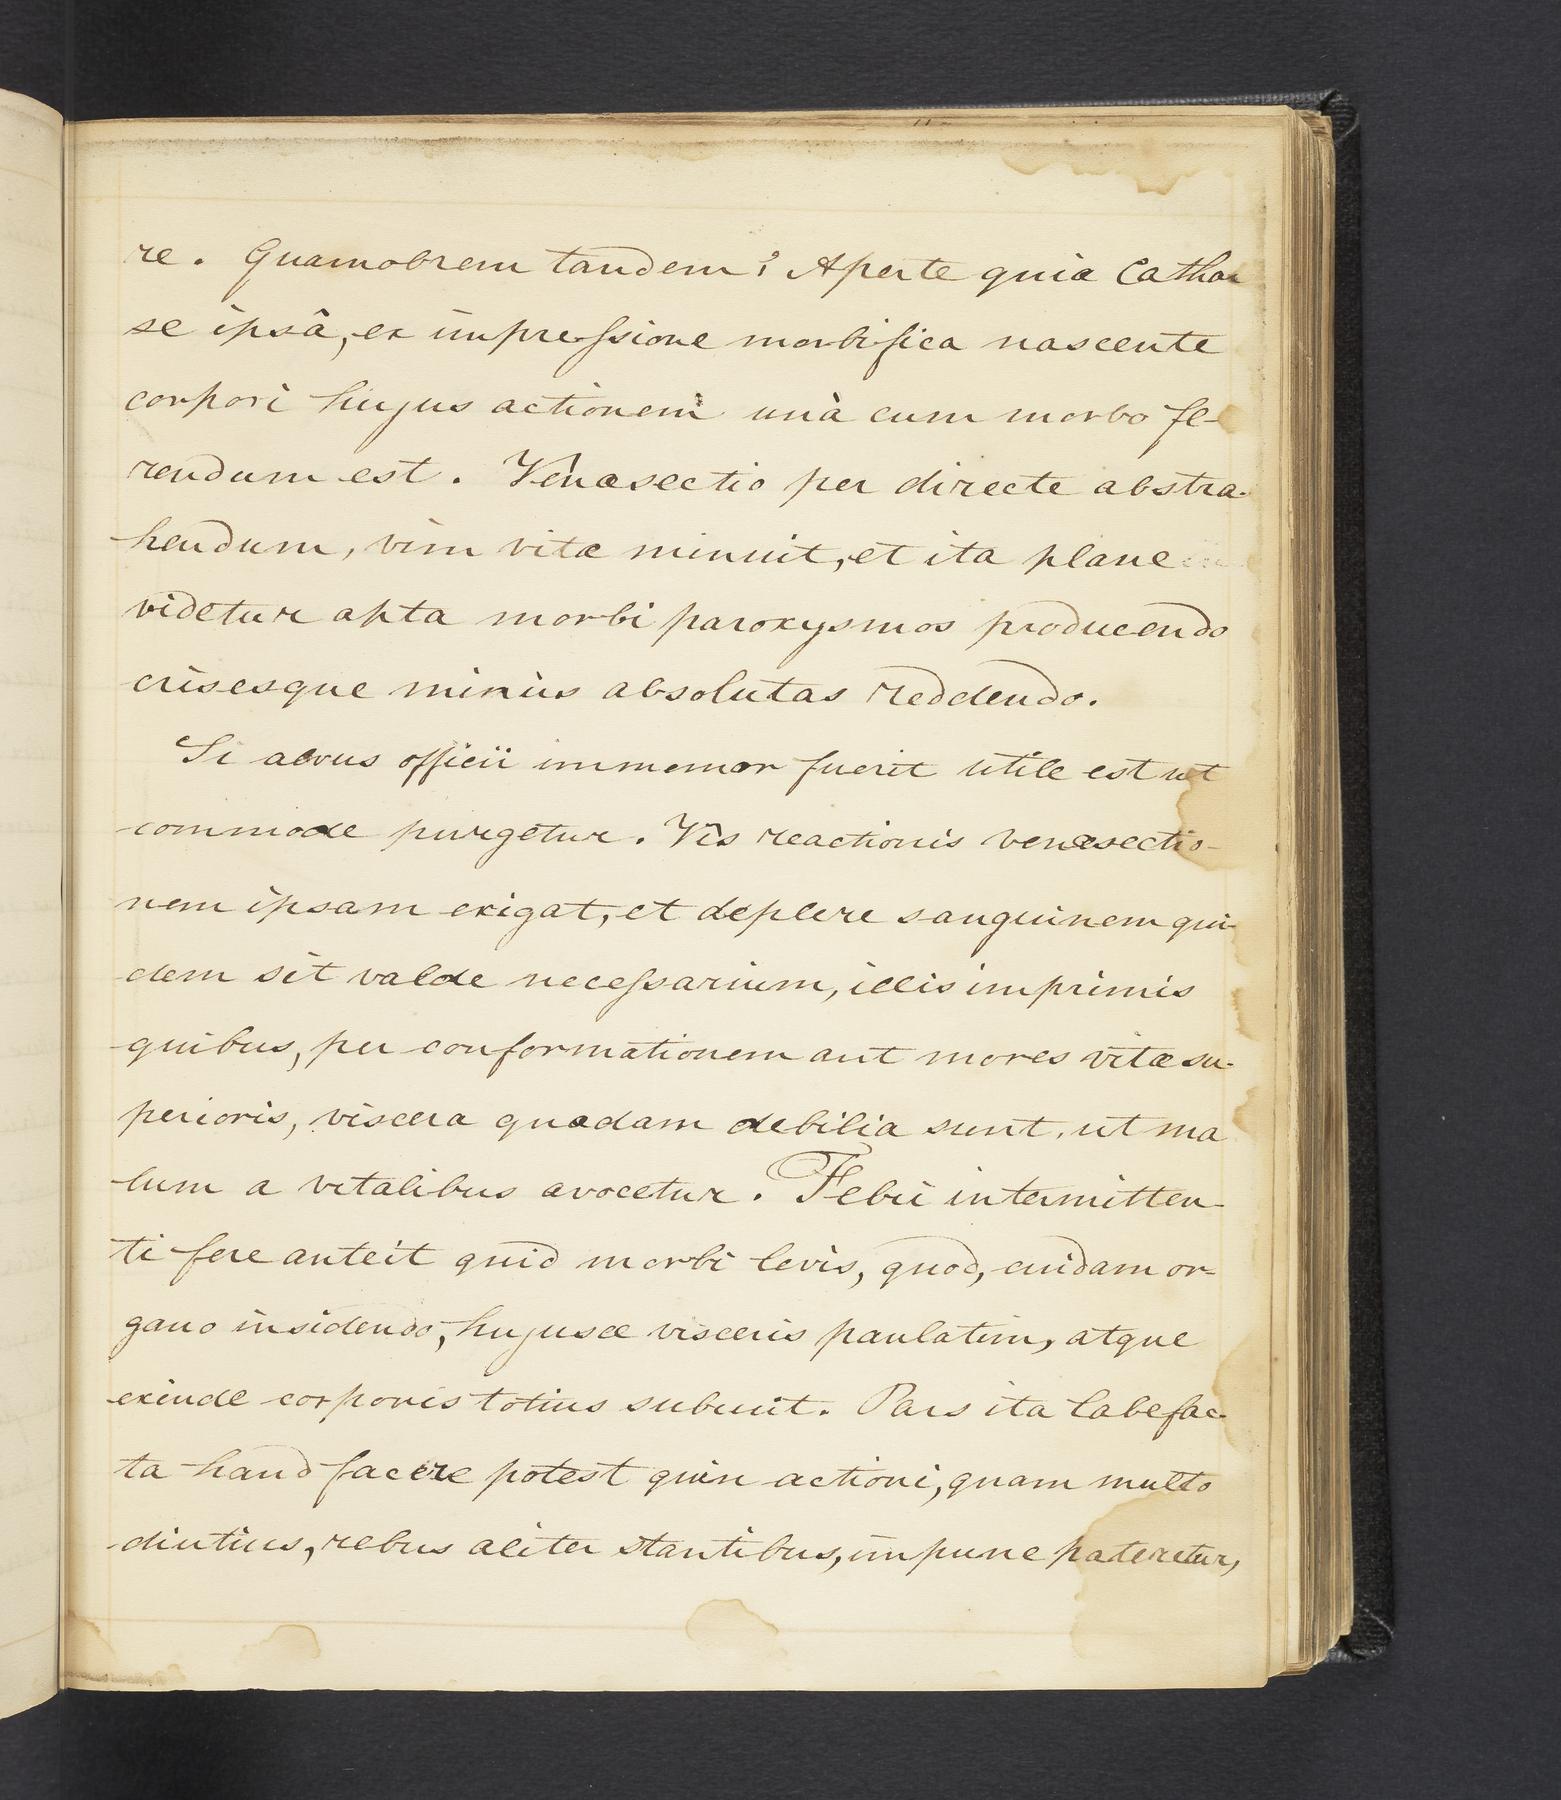 re. Quamobrem tandem? Aperte quia Cathar
se ipsâ, ex impressione morbifica nascente
corpori hujus actionem unà cum morbo fe-
rendum est. Venæsectio per directe abstra-
hendum, vim vitæ minuit, et ita plane
videtur apta morbi paroxysmos producendo
crisesque minùs absolutas reddendo.
Si alvus officii immemor fuerit utile est ut
commode purgetur. Vîs reactionis venæsectio-
nem ipsam exigat, et deplere sanguinem qui-
dem sit valde necessarium, illis imprimis
quibus, per conformationem aut mores vitæ su-
perioris, viscera quædam debilia sunt, ut ma
lum a vitalibus avocetur. Febri intermitten-
ti fere anteit quid morbi levis, quod, cuidam or-
gano insidendo, hujusce visceris paulatim, atque
exinde corporis totius subruit. Pars ita labefac-
ta haud facere potest quin actioni, quam multo
diutius, rebus aliter stantibus, impune pateretur,